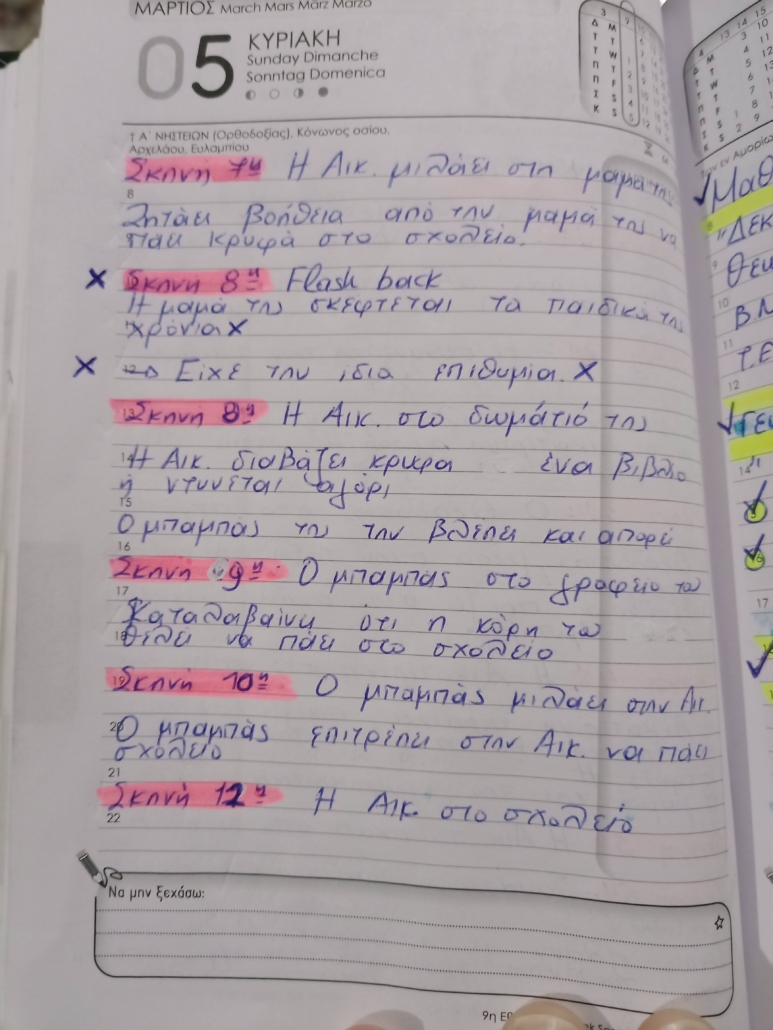 ΜΑΡΤΙΟΣ March Mars März Marzo
05 ΚΥΡΙΑΚΗ
Sunday Dimanche
Sonntag Domenica
† Α΄ ΝΗΣΤΕΙΩΝ (Ορθοδοξίας), Κόνωνος οσίου,
Αρχελάου, Ευλαμπίου
Σκηνή 7η Η Αικ. μιλάει στη μαμά της
8
Ζητάει βοήθεια από την μαμά της να
πάει κρυφά στο σχολείο.
X Σκηνή 8η Flash back
Η μαμά της σκέφτεται τα παιδικά της
χρόνια X
X 12 → Είχε την ίδια επιθυμία. X
13 Σκηνή 8η Η Αικ. στο δωμάτιό της
14 Η Αικ. διαβάζει κρυφά ένα βιβλίο
ή ντύνεται αγόρι
15
Ο μπαμπάς της την βλέπει και απορεί
16
Σκηνή 9η Ο μπαμπάς στο γραφείο του
17
Καταλαβαίνει ότι η κόρη του
18 θέλει να πάει στο σχολείο
19 Σκηνή 10η Ο μπαμπάς μιλάει στην Αικ.
20 Ο μπαμπάς επιτρέπει στην Αικ. να πάει
σχολείο
21
Σκηνή 12η Η Αικ. στο σχολείο
22
Να μην ξεχάσω: